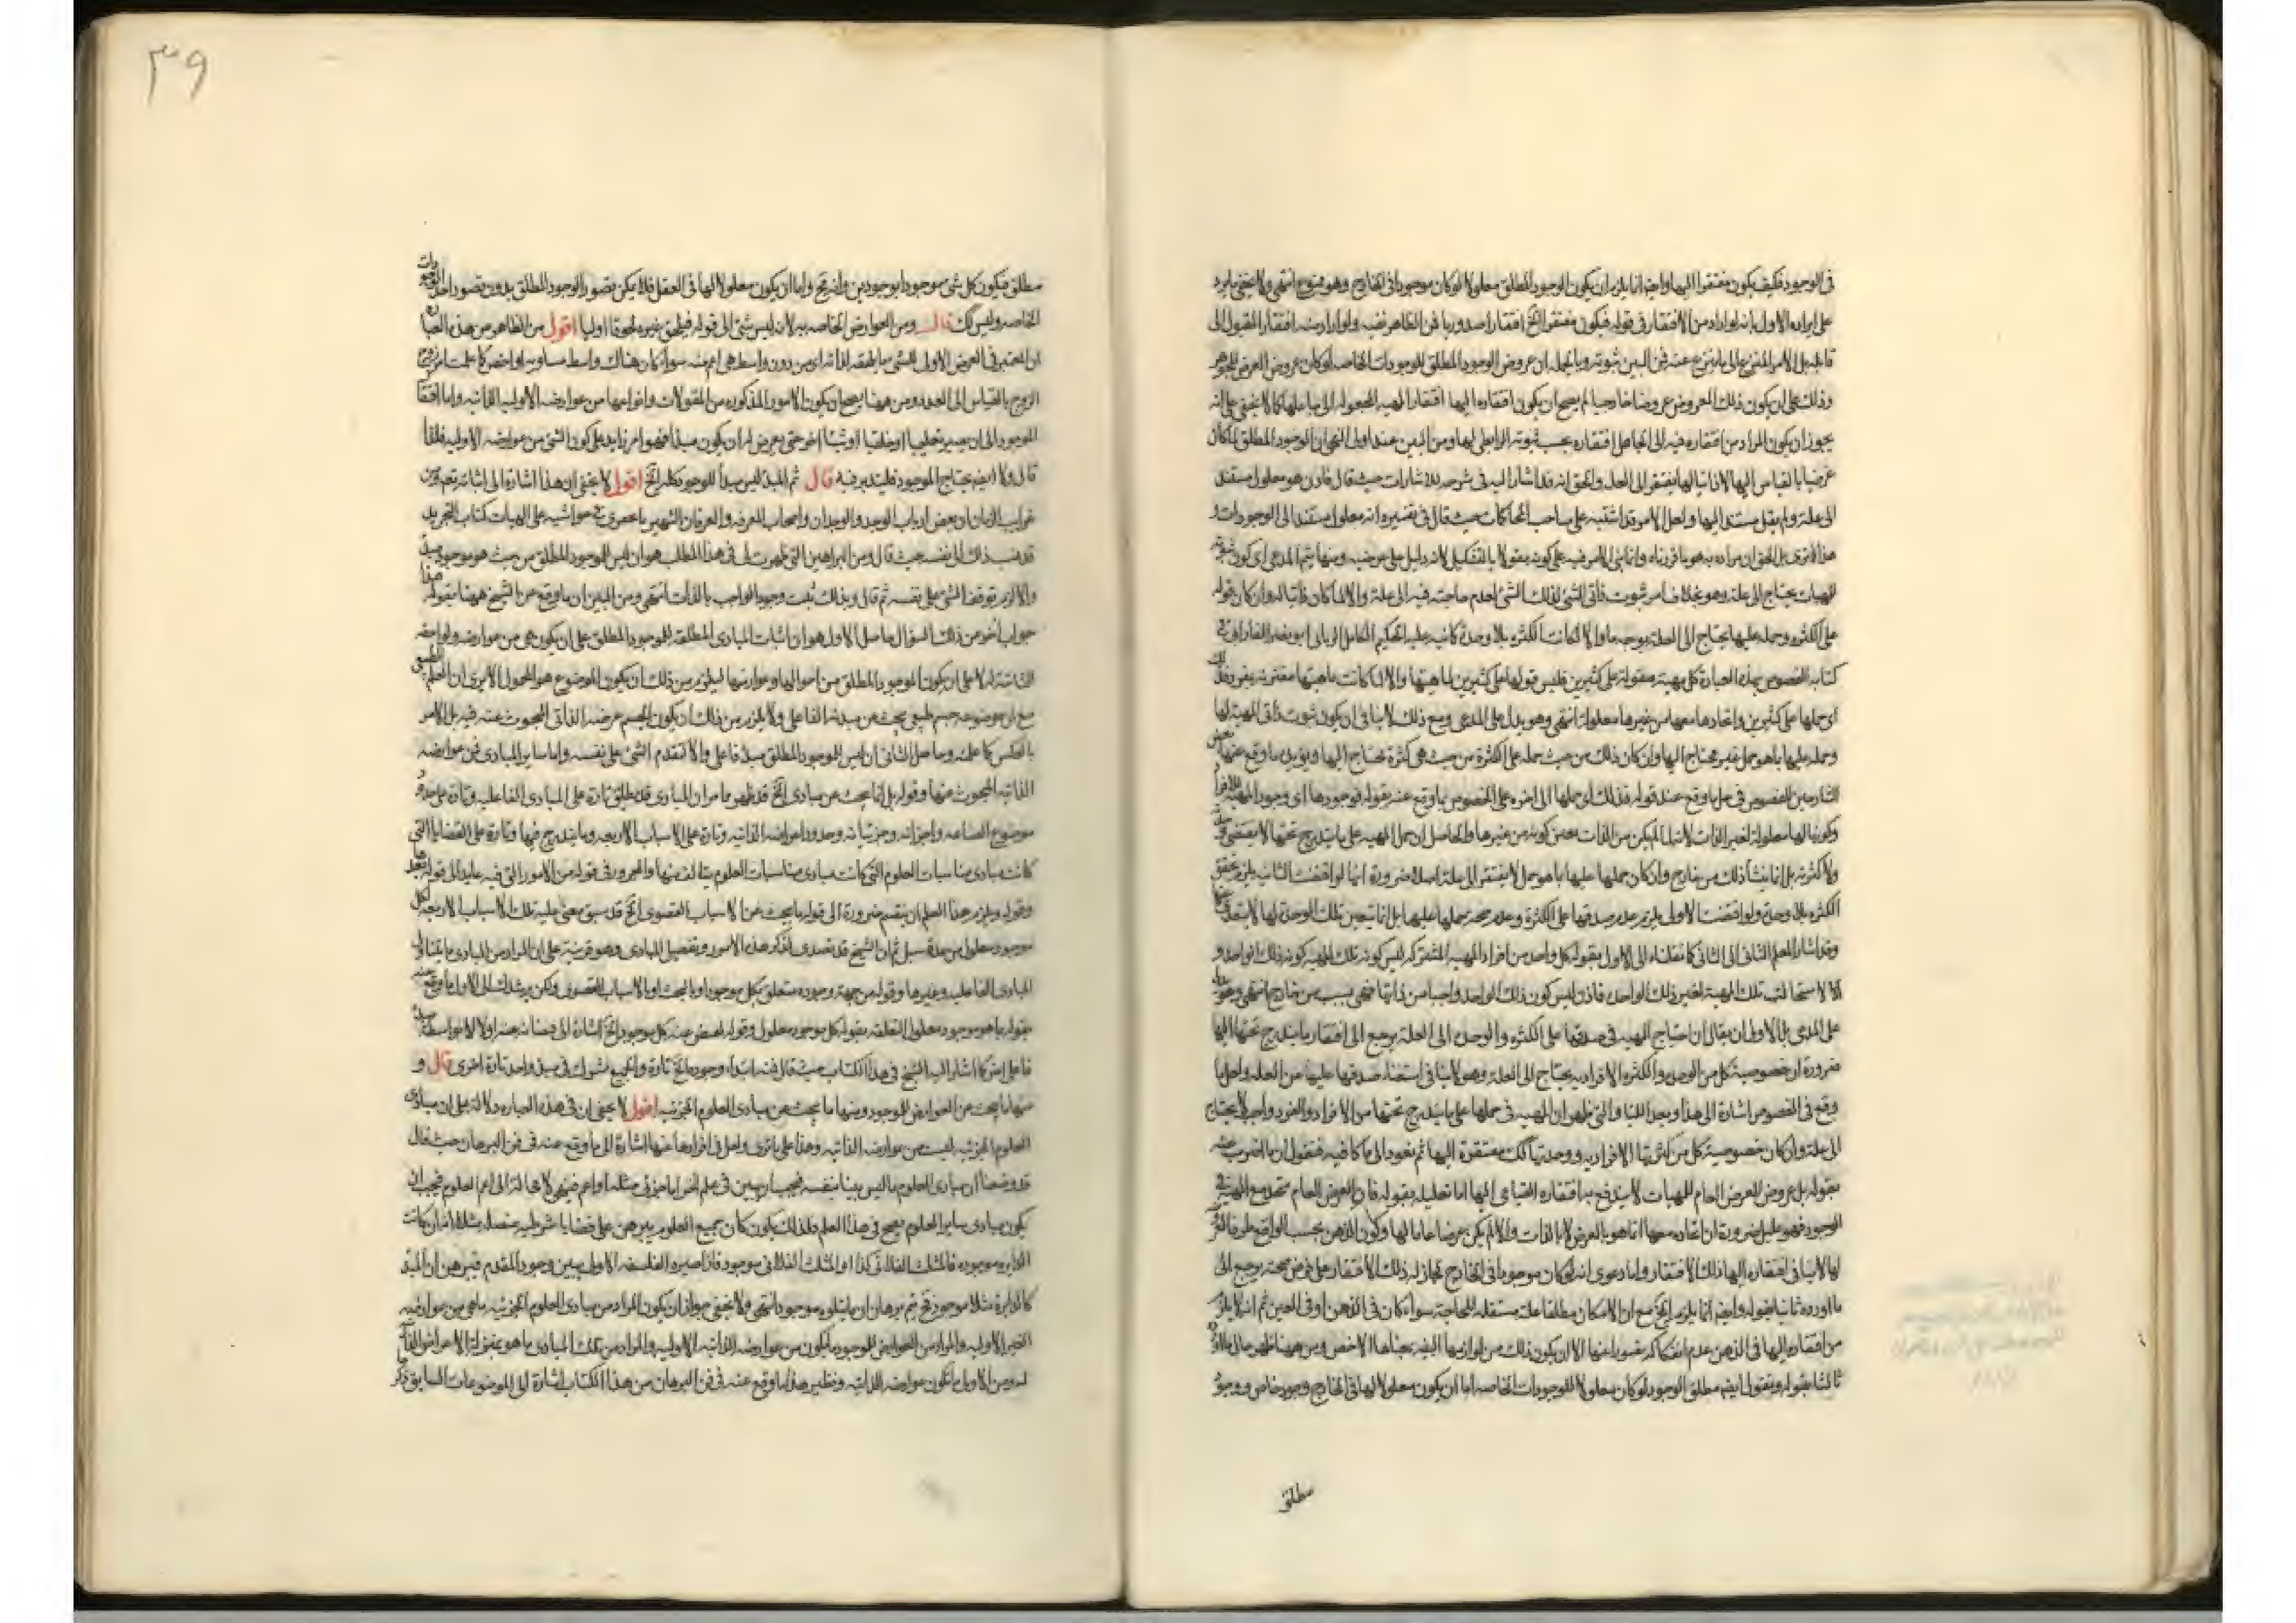 فى الوجود فكيف يكون مفتقرا اليها وايضا انما يلزم ان يكون الوجود المطلق معلولا لو كان موجودا فى الخارج وهو ممنوع انتهى ولا يخفى ما يرد
على ايراده الاول بانه لو اراد من الافتقار فى قوله فيكون مفتقرا الخ افتقارا صدوريا فمن الظاهر نفيه ولو اراد منه افتقار المقبول الى
قابله بل الامر المنتزع الى ما ينتزع عنه فمن البين ثبوته وبالجملة ان عروض الوجود المطلق للوجودات الخاصه لو كان عروض العرض للجوهر
وذلك على ان يكون ذلك المعروض عروضا خارجيا لم يصح ان يكون افتقاره اليها افتقار المهية المجعوله الى جاعلها كما لا يخفى على انه
يجوز ان يكون المراد من افتقاره فيه الى الجاعل افتقاره بحسب ثبوته الرابطى لها ومن البين عند اولى النهى ان الوجود المطلق لما كان
عرضيا بالقياس اليها لا ذاتيا لها يفتقر الى العلة والحق انه قد اشار اليه فى شرحه للاشارات حيث قال فاذن هو معلول مستند
الى علة ولم يقل مستند اليها ولعل الامر قد اشتبه على صاحب المحاكمات حيث قال فى تفسيره انه معلول مستند الى الوجودات و
هذا كما ترى بل الحق ان مراده به هو ما قررناه وانما بنى الامر فيه على كونه مقولا بالتشكيك لانه دليل على عرضيه ومنها يتم المدعى اى كون ثبوته
للمهيات يحتاج الى علة وهو بخلاف امر ثبوت ذاتى الشئ لذلك الشئ لعدم حاجته فيه الى علة والا لما كان ذاتيا له وان كان قوله
على الكثره وحمله عليها يحتاج الى العلة بوجه ما والا لكانت الكثره بلا وحدة كما نبه عليه الحكيم الكامل الربانى ابو نصر الفارابى فى
كتابه الفصوص بهذه العبارة كل مهية مقولة على كثيرين فليس قولها على كثيرين لماهيتها والا لما كانت ماهيتها مفترقة بفرد فذلك
اى حملها على كثيرين واتحادها معها من غيرها معلولة انتهى وهو يدل على المدعى ومع ذلك لا ينافى ان يكون ثبوت ذاتى المهية لها
وحمله عليها بما هو حمل غير محتاج اليها وان كان ذلك من حيث حمله على الكثرة من حيث هى كثرة تحتاج اليها ويؤيده ما وقع عنها بعض
الشارحين للفصوص فى حل ما وقع عنه قوله فذلك اى حملها الى اخره على الخصوص ما وقع عنه بقوله فوجودها اى وجود المهية للافراد
وكونها لها معلولة لغير الذات لانها لما لم يكن من الذات تعين كونه من غيرها والحاصل ان حمل المهية على ما يندرج تحتها لا يقتضى وحدة
ولا كثرته بل انما ينشأ ذلك من خارج وان كان حملها عليها بما هو حمل لا يفتقر الى علة اصلا ضرورة انها لو اقتضت الثانيه يلزم تحقق
الكثره بلا وحدة ولو اقتضت الاول يلزم عدم صدقها على الكثرة وعدم صحة حملها عليها بل انما تتعين تلك الوحدة لها لا يتعداها
وقد اشار المعلم الثانى الى الثانى كما نقلناه الى الاول بقوله كل واحد من افراد المهية المشتركه ليس كونه تلك المهية كونه ذلك الواحد و
الا لاستحالت تلك المهية لغير ذلك الواحد فاذن ليس كون ذلك الواحد واجبا من ذاتها فهى بسبب من خارج انتهى وهو يدل
على المدعى بل الاولى ان يقال ان احتياج المهيه فى صدقها على الكثره والوحده الى العلة يرجع الى افتقار ما يندرج تحتها اليها
ضرورة ان خصوصية كل من الوحده والكثره الافراديه يحتاج الى العلة وهو لا ينافى استغناء صدقها عليها عن العله ولعل ما
وقع فى الفصوص اشارة الى هذا وبعد اللتيا والتى ظهر ان المهيه فى حملها على ما يندرج تحتها من الافراد والفرد واحد لا يحتاج
الى علة وان كان خصوصية كل من كثرتها الافراديه ووحدتها كك مفتقرة اليها ثم نعود الى ما كنا فيه فنقول ان ما اضرب عنه
بقوله بل عروض العرض العام للمهيات لا يندفع به افتقاره القيامى اليها اما تعليله بقوله فان العرض العام متحد مع المهية فى
الوجود فهو عليل ضرورة ان اتحاده معها انما هو بالعرض لا بالذات والا لم يكن عرضا عاما لها وكون الذهن بحسب الواقع ظرفا
لها لا ينافى افتقاره اليها ذلك الافتقار واما دعوى انه لو كان موجودا فى الخارج لجاز له ذلك الافتقار على فرض صحته يرجع الى
ما اورده ثانيا بقوله وايضا انما يلزم الخ مع ان الامكان مطلقا علة مستقله للحاجة سواء كان فى الذهن او فى العين ثم انه لا يلزم
من افتقاره اليها فى الذهن عدم انفكاكه تصورا عنها الا ان يكون ذلك من لوازمها البينه بمعناها الاخص ومن ههنا ظهر حال ما اورده
ثالثا بقوله ونقول ايضا مطلق الوجود لو كان معلولا للوجودات الخاصه اما ان يكون معلولا لها فى الخارج وجود خاص ووجود
مطلق
٣٩
مطلق فيكون كل شئ موجودا بوجودين وانه مح واما ان يكون معلولا لها فى العقل فلا يمكن تصور الوجود المطلق بدون تصور احد الوجودات
الخاصه وليس كك قال ومن العوارض الخاصه به لانه ليس شئ الى قوله فيلحق بغيره لحوقا اوليا اقول من الظاهر من هذه العبارة
ان المعتبر فى العرض الاولى للشئ ما يلحقه لذاته اى من دون واسطه هى اعم منه سواء كان هناك واسط مساو له او اخص كما علمت امر
الزوج بالقياس الى العدد ومن ههنا يصح ان يكون الامور المذكوره من المقولات وانواعها من عوارضه الاوليه الذاتيه واما افتقار
الموجود الى ان يصير تعليميا او خلقيا او شيئا اخر حتى يعرض له ان يكون مبدأ فهو امر زايد على كون الشئ من عوارضه الاوليه فلذا
قال ولا ايضا يحتاج الموجود فليتدبر فيه قال ثم المبدأ ليس مبدأ للوجود كله الخ اقول لا يخفى ان هذا اشارة الى اثباته ثم من
غرايب الزمان ان بعض ارباب الوجد والوجدان واصحاب المعرفه والعرفان الشهير بالخفرى فى حواشيه على الهيات كتاب التجريد
قد نسب ذلك الى نفسه حيث قال ومن البراهين التى ظهرت لى فى هذا المطلب هو ان ليس للوجود المطلق من حيث هو موجود مبدأ
والا لزم توقف الشئ على نفسه ثم قال وبذلك ثبت وجود الواجب بالذات انتهى ومن البين ان ما وقع من الشيخ ههنا بقوله هذا
جواب اخر من ذلك السؤال حاصل الاول هو ان اثبات المبادى المطلقه للموجود المطلق على ان يكون هى من عوارضه ولواحقه
الذاتيه له لا على ان يكون الموجود المطلق من احوالها وعوارضها فيلزم من ذلك ان يكون الموضوع هو المحمول الا يرى ان العلم الطبيعى
مع ان موضوعه جسم طبيعى يبحث عن مبدئه الفاعلى ولا يلزم من ذلك ان يكون الجسم عرضه الذاتى المبحوث عنه فيه بل الامر
بالعكس كما علمته وحاصل الثانى ان ليس للموجود المطلق مبدأ فاعلى والا لتقدم الشئ على نفسه واما ساير المبادى فمن عوارضه
الذاتيه المبحوث عنها وقوله بل انما يبحث عن مبادى الخ قد ظهر ما مر ان المبادى قد يطلق تارة على المبادى الفاعليه وتارة على حدود
موضوع الصناعه واجزائه وجزئياته وحدود اعراضه الذاتيه وتارة على الاسباب الاربعه وما يندرج فيها وتارة على القضايا التى
كانت مبادى قياسات العلوم التى كانت مبادى قياسات العلوم يتألف منها والمجرور فى قوله من الامور التى فيه عايد الى قوله
وقوله ويلزم هذا العلم ان ينقسم ضرورة الى قوله ما يبحث عن الاسباب القصوى الخ قد سبق معنى علية تلك الاسباب الاربعه لكل
موجود معلول من عدة سبل ثم ان الشيخ قد تصدى لذكر هذه الامور وتفصيل المبادى وهو قرينة على ان المراد من المبادى ما يتناول
المبادى الفاعليه وغيرها وقوله من جهة وجوده متعلق بكل موجود او بالبحث او بالاسباب القصوى ولكن يرشدك الى الاول ما وقع عنه
بقوله بما هو موجود معلول المتعلقه بقوله كل موجود معلول وقوله لفيض عنه كل موجود الخ اشارة الى فيضانه عنه اولا لا بواسطة مبدأ
فاعلى اخر كما اشار اليه الشيخ فى هذا الكتاب حيث قال فمنه ابتداء وجود ما الخ تارة والجميع مشترك فى مبدأ واحد تارة اخرى قال و
منها ما يبحث عن العوارض للموجود ومنها ما يبحث عن مبادى العلوم الجزئيه اقول لا يخفى ان فى هذه العباره دلالة على ان مبادى
العلوم الجزئيه ليست من عوارضه الذاتيه وهذا على ما ترى ولعل فى افرادها عنها اشارة الى ما وقع عنه فى فن البرهان حيث قال
قد وضعنا ان مبادى العلوم ما ليس بينا بنفسه فيجب ان يبين فى علم اخر اما جزئى مثله او اعم فينتهى لا محالة الى اعم العلوم فيجب ان
يكون مبادى ساير العلوم يصح فى هذا العلم فلذلك يكون كان جميع العلوم يبرهن على قضايا شرطيه متصله مثلا انه ان كانت
الدايره موجوده فالمثلث الفلانى كذا او المثلث الفلانى موجود فاذا صير الى الفلسفه الاولى يبين وجود المقدم فيبرهن ان المبدأ
كالدايرة مثلا موجود فح يتم برهان ان ما يتلوه موجود انتهى ولا يخفى جواز ان يكون المراد من مبادى العلوم الجزئيه ما هى من عوارضه
الغير الاوليه والمراد من العوارض للموجود ما يكون من عوارضه الذاتيه الاوليه والمراد من تلك المبادى ما هو بمنزلة الاعراض الذاتيه
له ومن الاول ما يكون عوارضه الذاتيه ونظير هذا ما وقع عنه فى فن البرهان من هذا الكتاب اشارة الى الموضوعات السابق ذكر